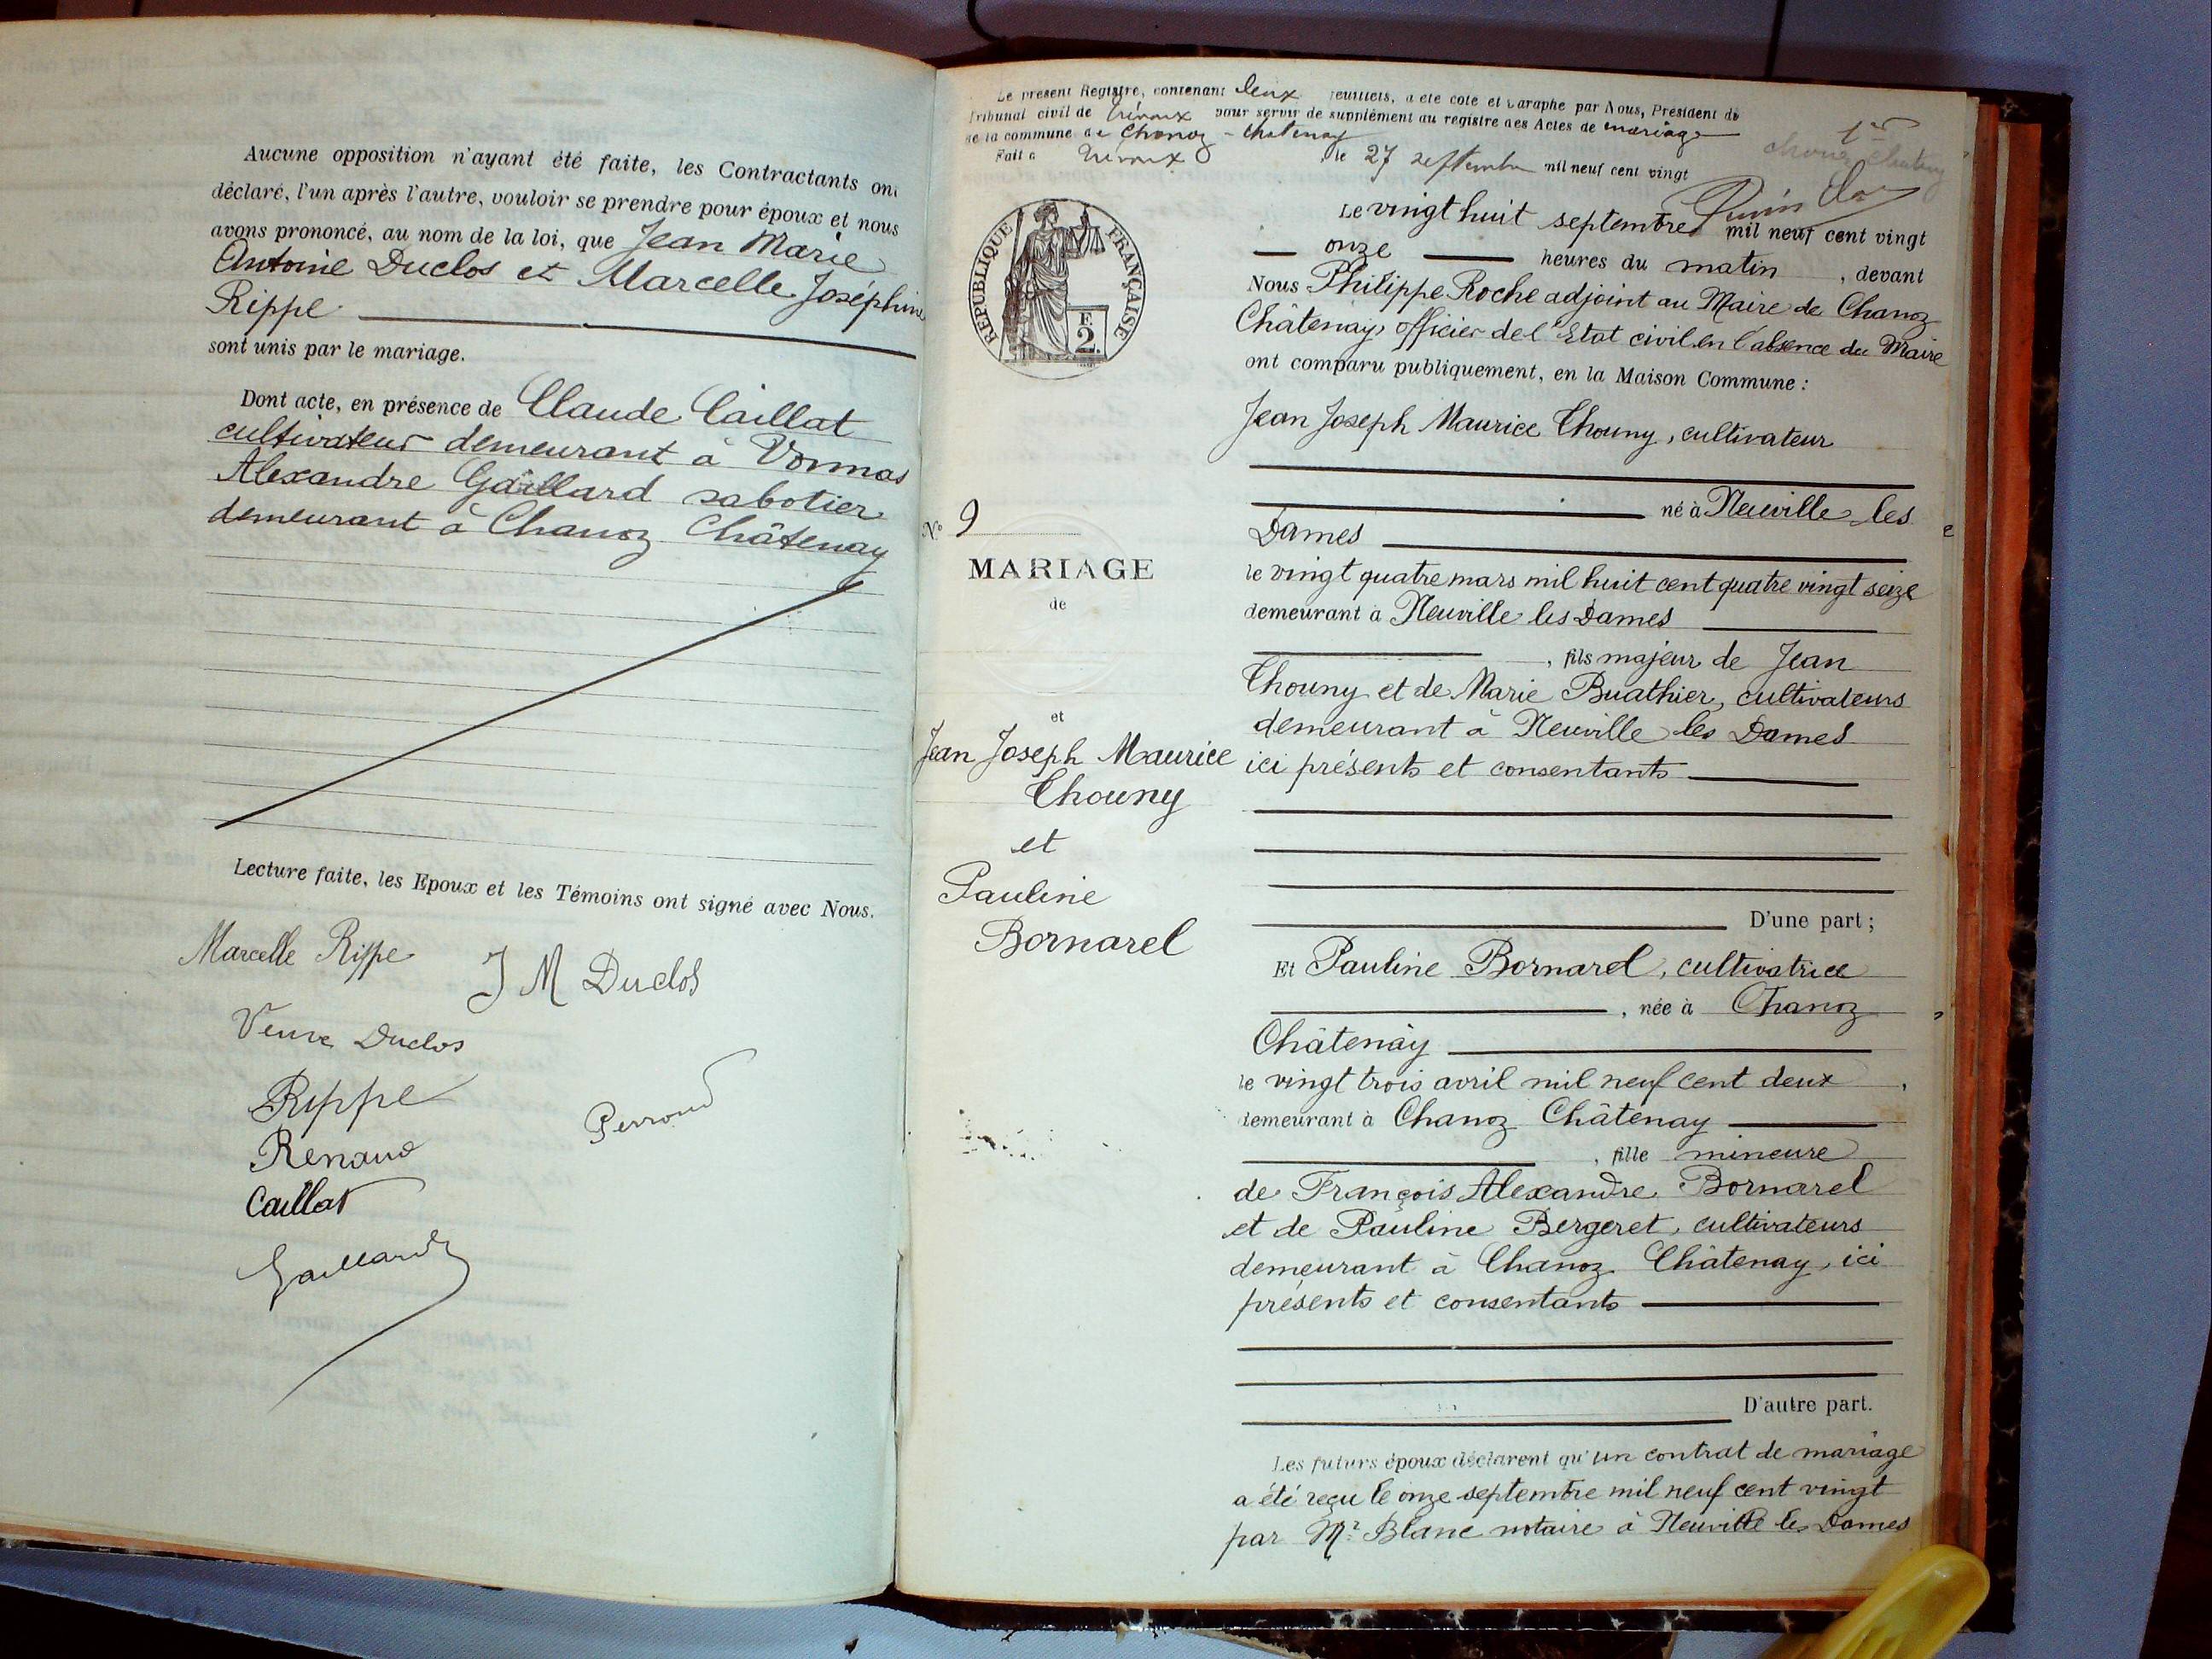 Aucune opposition n'ayant été faite, les Contractants ont
déclaré, l'un après l'autre, vouloir se prendre pour époux et nous
avons prononcé, au nom de la loi, que Jean Marie
Antoine Duclos et Marcelle Joséphine
Rippe
sont unis par le mariage.
Dont acte, en présence de Claude Caillat
cultivateur demeurant à Vonnas
Alexandre Gaillard sabotier
demeurant à Chanoz Châtenay
Lecture faite, les Epoux et les Témoins ont signé avec Nous.
Marcelle Rippe
J M Duclos
Veuve Duclos
Rippe
Perroud
Renaud
Caillat
Gaillard
Le présent Registre, contenant deux feuillets, a été coté et paraphé par Nous, Président du
Tribunal civil de Trévoux pour servir de supplément au registre des Actes de mariage
de la commune de Chanoz-Chatenay
Fait à Trévoux le 27 septembre mil neuf cent vingt
1er
RÉPUBLIQUE FRANÇAISE
E
2.
Le vingt huit septembre mil neuf cent vingt
onze heures du matin, devant
Nous Philippe Roche adjoint au Maire de Chanoz
Châtenay, officier de l'Etat civil en l'absence du Maire
ont comparu publiquement, en la Maison Commune :
Jean Joseph Maurice Chouny, cultivateur
né à Neuville les
Dames
le vingt quatre mars mil huit cent quatre vingt seize
demeurant à Neuville les Dames
, fils majeur de Jean
Chouny et de Marie Buathier, cultivateurs
demeurant à Neuville les Dames
ici présents et consentants
D'une part ;
Et Pauline Bornarel, cultivatrice
, née à Chanoz
Châtenay
le vingt trois avril mil neuf cent deux
demeurant à Chanoz Châtenay
, fille mineure
de François Alexandre Bornarel
et de Pauline Bergeret, cultivateurs
demeurant à Chanoz Châtenay, ici
présents et consentants
D'autre part.
Les futurs époux déclarent qu'un contrat de mariage
a été reçu le onze septembre mil neuf cent vingt
par Mr Blanc notaire à Neuville les Dames
N° 9
MARIAGE
de
et
Jean Joseph Maurice
Chouny
et
Pauline
Bornarel